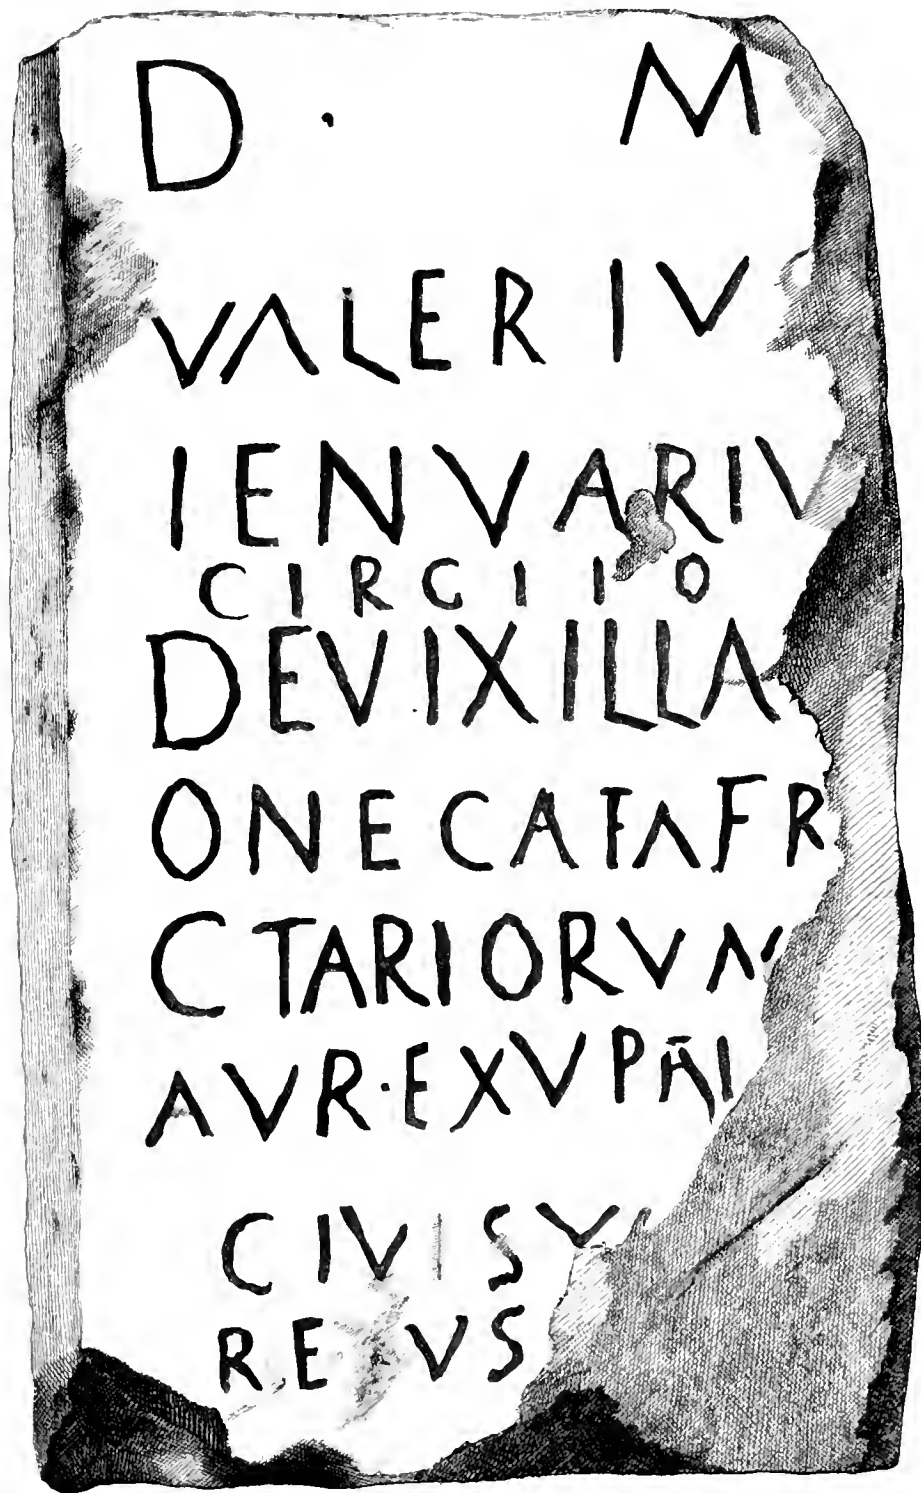 D · M
VALERIV
IENVARIV
CIRCIIO
DEVIXILLA
ONECATAFR
CTARIORVM
AVR·EXVPAI
CIVISV
RE VS